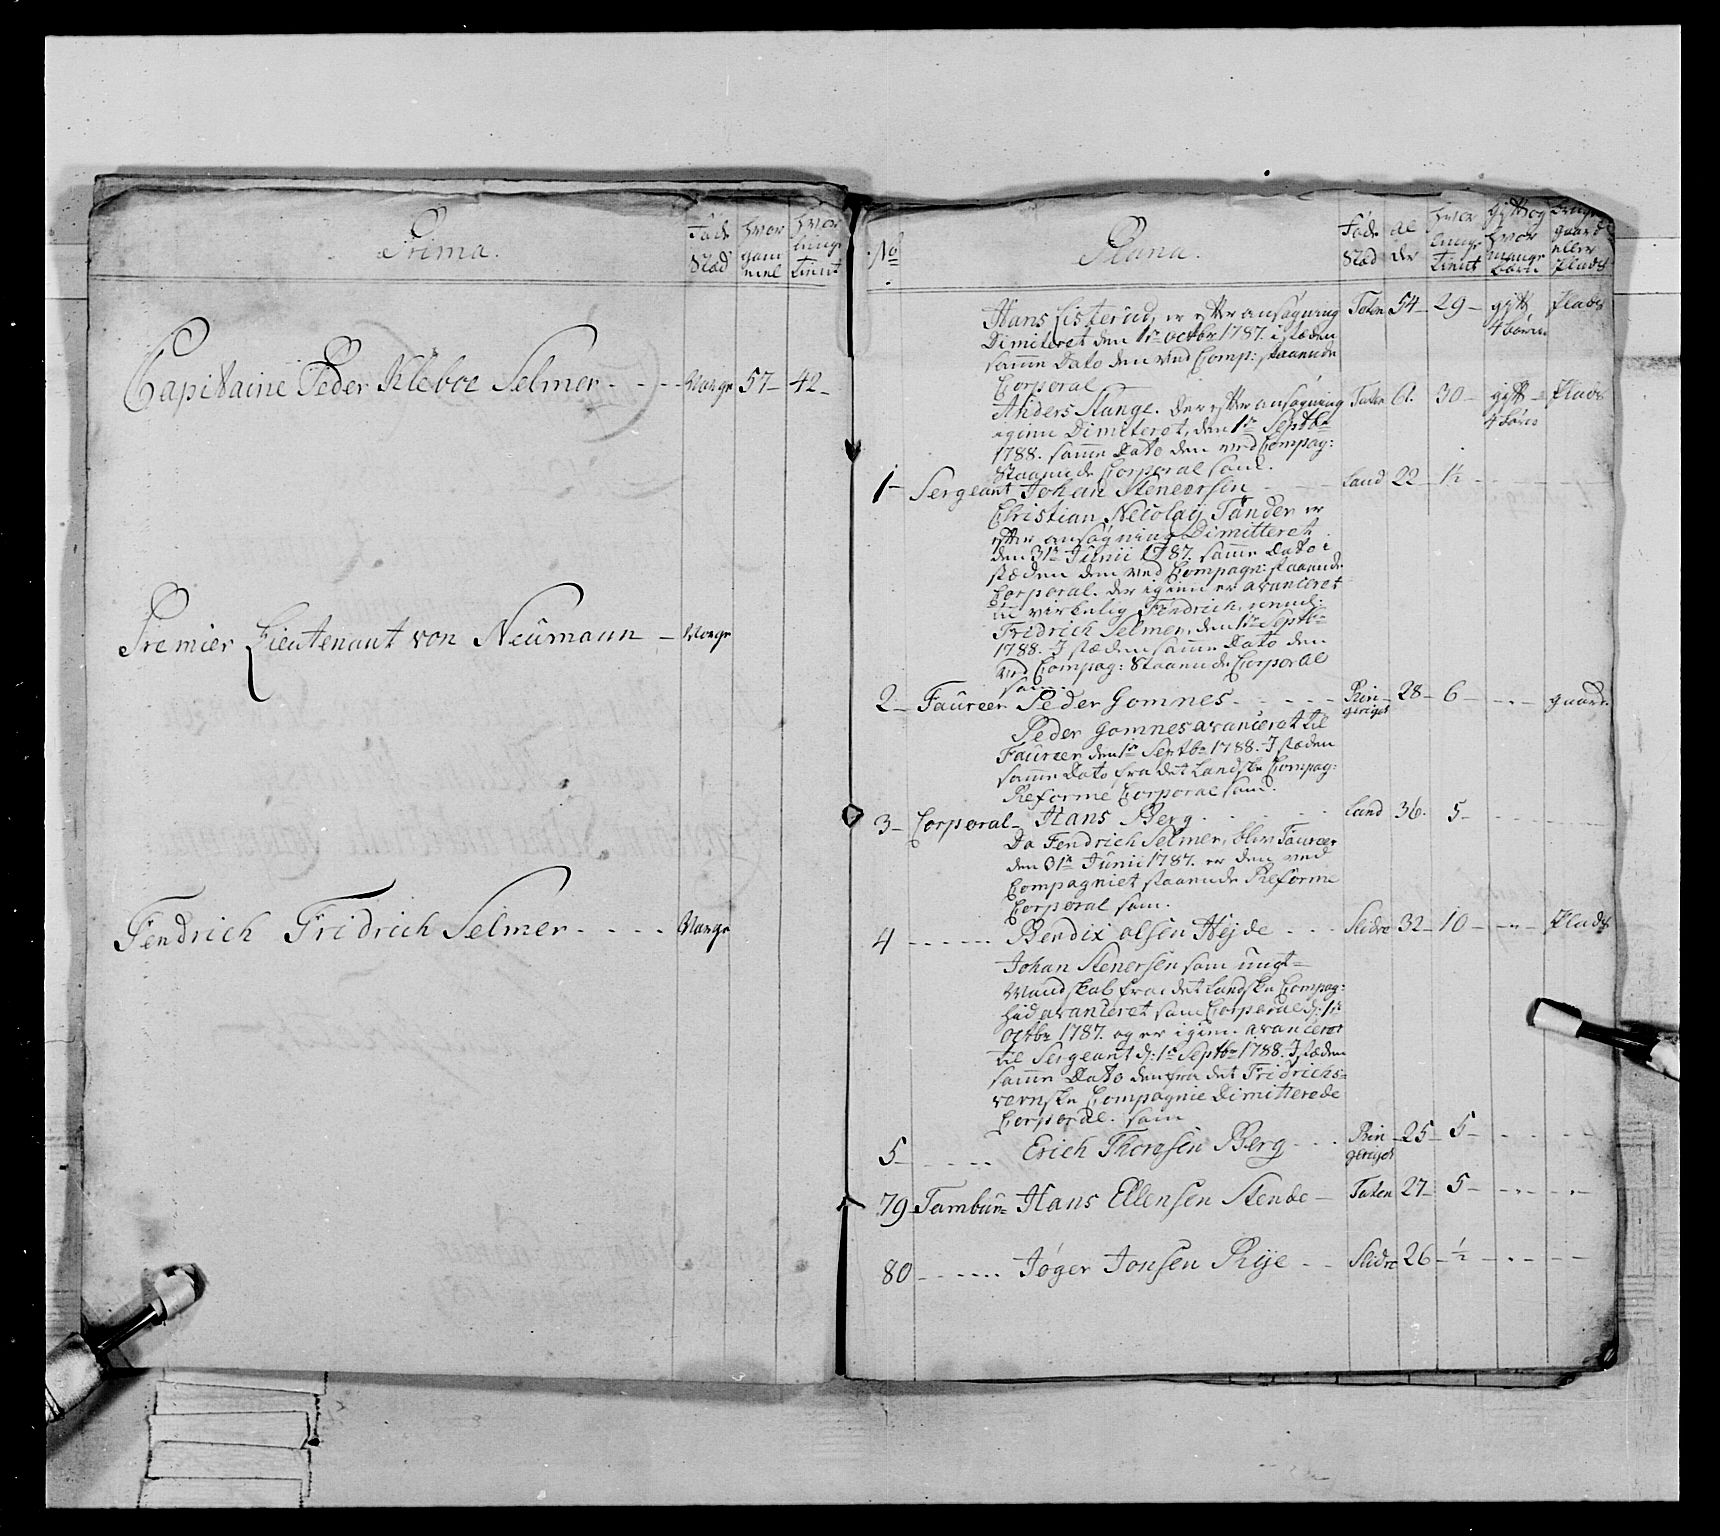 Prima.
Føde
Stæd
hvor
gam
mel
hvor
længe
tient
Capitaine Peder Kleboe Selmer - - - - Norge 57 - 42 -
Premier Lieutenant von Neumann - Norge
Fendrich Fridrich Selmer - - - - Norge
No
Plana.
Føde
Stæd
al
der
hvor
længe
tient
gift og
hvor
mange
børn
bruger
gaard
eller
Plads
Hans Listerud, er efter ansøgning Toten 54 - 29 - gift Plads
Dimiteret den 1te octbr 1787. i stæden 4 børn
samme Dato den ved Comp: staaende
Corporal
Anders Stange. der efter ansøgning Toten 61. 30 - gift - Plads
igien Dimiteret, den 1te Septbr 4 børn
1788. samme Dato den ved Compag:
Staaende Corporal som.
1 - Sergeant Johan Stenersen - - - Land 22 - 1½ - - -
Christian Necolaij Tønder er
efter ansøgning Dimitteret
den 31te Junii 1787. samme Dato i
stæden den ved Compagn: staaende
Corporal. der igien er avanceret
til virkelig Fendrich, nemlig:
Fridrich Selmer, den 1te Septbr
1788. I stæden samme Dato den
ved Compag: Staaende Corporal
som.
2 - Faureer Peder Gomnes - - - - Rin 28 - 6 - - - - gaard.
geriget
Peder Gomnes avanceret til
Faureer den 1te Septbr 1788. I stæden
samme Dato fra det Landske Compag:
Reforme Corporal som.
3 - Corporal - Hans Berg - - - Land 36. 5 - - - -
Da Fendrich Selmer, blev Faureer
den 31te Junii 1787. er den ved
Compagniet staaende Reforme
Corporal som.
4 - - - - - - Bendix Olsen Hejde - - - Slidre 32 - 10 - - - - Plads
Johan Stenersen som ungt-
Mandskab fra det Landske Compag:
hid avanceret som Corporal d: 1te
octbr 1787. og er igien avanceret
til Sergeant d: 1te Septbr 1788. I stæden
samme Dato den fra det Fridrichs-
vernske Compagnie Dimitterede
Corporal. som
5 - - - - - - Erich Thoresen Berg - - - Rin - 25 - 5 - - - -
geriget
79 - Tambur= Hans Ellensen Stende - Toten 27 - 5 - - - -
80 - - - - - - Jøger Jonsen Rije - - Slidre 26 - ½ - - - -